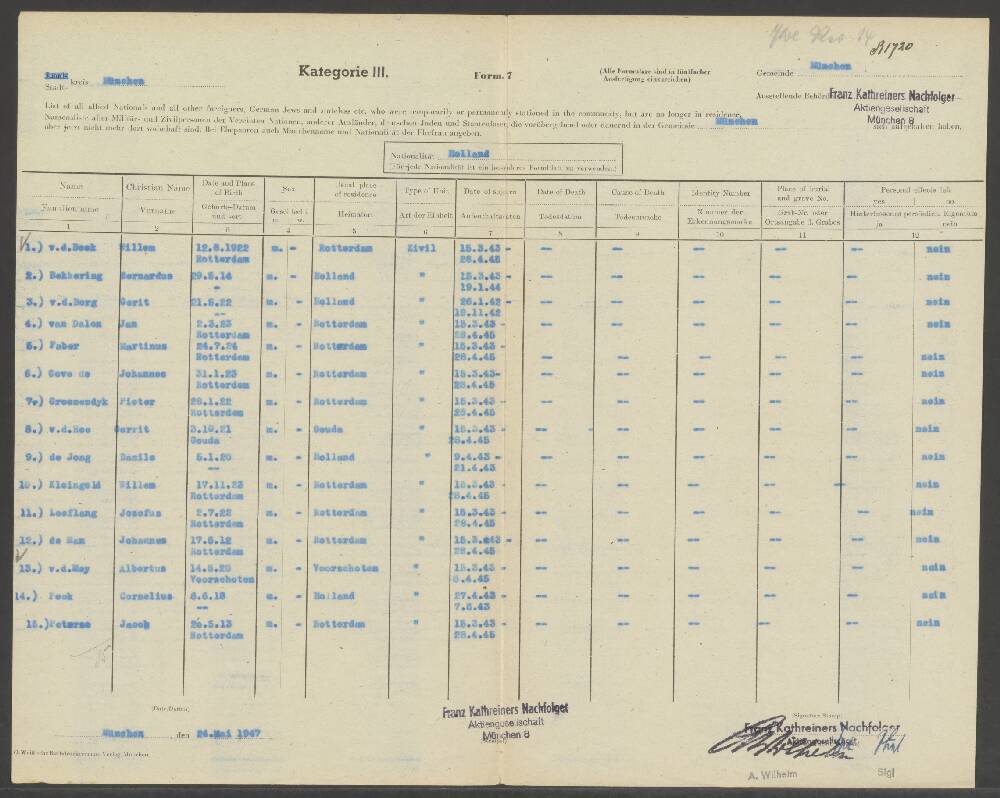 A1720
Land-
Stadt- kreis München
Kategorie III.
Form. 7
(Alle Formulare sind in fünffacher
Ausfertigung einzureichen)
Gemeinde München
Ausstellende Behörde Franz Kathreiners Nachfolger
Aktiengesellschaft
München 8
List of all allied Nationals and all other foreigners, German Jews and stateless etc. who were temporarily or permanently stationed in the community, but are no longer in residence.
Namensliste aller Militär- und Zivilpersonen der Vereinten Nationen, anderer Ausländer, deutschen Juden und Staatenloser, die vorübergehend oder dauernd in der Gemeinde München sich aufgehalten haben,
aber jetzt nicht mehr dort wohnhaft sind. Bei Ehepaaren auch Mädchenname und Nationalität der Ehefrau angeben.
Nationalität Holland
(Für jede Nationalität ist ein besonderes Formblatt zu verwenden.)
Name Christian Name Date and Place of Birth Sex Usual place of residence Type of Unit Date of sojourn Date of Death Cause of Death Identity Number Place of burial and grave No. Personal effects left yes no
Familienname Vorname Geburts-Datum und -ort Geschlecht m. w. Heimatort Art der Einheit Aufenthaltsdaten Todesdatum Todesursache Nummer der Erkennungsmarke Grab-Nr. oder Ortsangabe d. Grabes Hinterlassenes persönliches Eigentum ja nein
1 2 3 4 5 6 7 8 9 10 11 12
1.) v.d.Beek Willem 12.8.1922 m. - Rotterdam Zivil 15.3.43 - -- -- -- -- -- nein
Rotterdam 28.4.45
2.) Bekkering Bernardus 29.5.14 m. - Holland " 15.3.43 - -- -- -- -- -- nein
-- 19.1.44
3.) v.d.Berg Gerit 21.6.22 m. - Holland " 26.1.42 - -- -- -- -- -- nein
-- 19.11.42
4.) van Dalen Jan 2.3.23 m. - Rotterdam " 15.3.43 - -- -- -- -- -- nein
Rotterdam 28.4.45
5.) Faber Martinus 24.7.24 m. - Rotterdam " 15.3.43 - -- -- -- -- -- nein
Rotterdam 28.4.45
6.) Gove de Johannes 31.1.23 m. - Rotterdam " 15.3.43- -- -- -- -- -- nein
Rotterdam 28.4.45
7.) Groenendyk Pieter 28.1.22 m. - Rotterdam " 15.3.43 - -- -- -- -- -- nein
Rotterdam 28.4.45
8.) v.d.Hee Gerrit 3.10.21 m. - Gouda " 15.3.43 - -- -- -- -- -- nein
Gouda 28.4.45
9.) de Jong Danile 5.1.20 m. - Holland " 9.4.43 - -- -- -- -- -- nein
-- 21.4.43
10.) Kleingeld Willem 17.11.23 m. - Rotterdam " 15.3.43 - -- -- -- -- -- nein
Rotterdam 28.4.45
11.) Loeflang Josefus 2.7.22 m. - Rotterdam " 15.3.43 - -- -- -- -- -- nein
Rotterdam 28.4.45
12.) de Man Johannes 17.5.12 m. - Rotterdam " 15.3.43 - -- -- -- -- -- nein
Rotterdam 28.4.45
13.) v.d.Mey Albertus 14.5.20 m. - Voorschoten " 15.3.43 - -- -- -- -- -- nein
Voorschoten 8.4.45
14.) Peek Cornelius 6.6.18 m. - Holland " 27.4.43 - -- -- -- -- -- nein
-- 7.5.43
15.)Peterse Jacob 20.5.13 m. - Rotterdam " 15.3.43 - -- -- -- -- -- nein
Rotterdam 28.4.45
(Date/Datum)
München , den 24.Mai 1947
Franz Kathreiners Nachfolger
Aktiengesellschaft
München 8
Franz Kathreiners Nachfolger
Aktiengesellschaft
A. Wilhelm Sigl